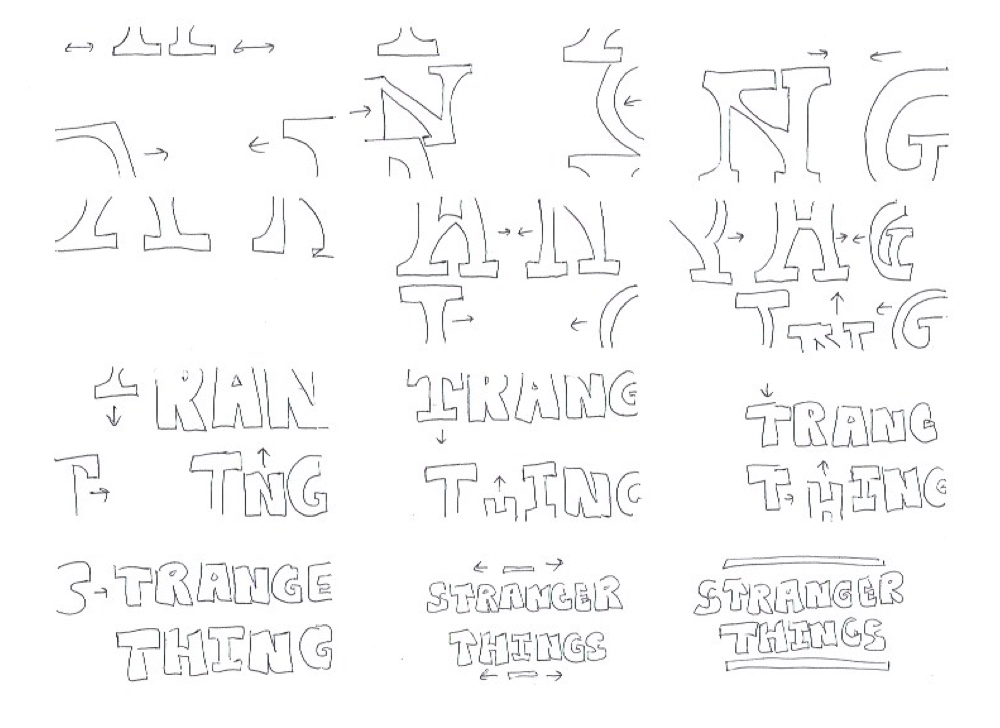 N
NG
AN
T
RAG
T G
RAN
TNG
TRANG
THING
TRANG
THING
S TRANGE
THING
STRANGER
THINGS
STRANGER
THINGS